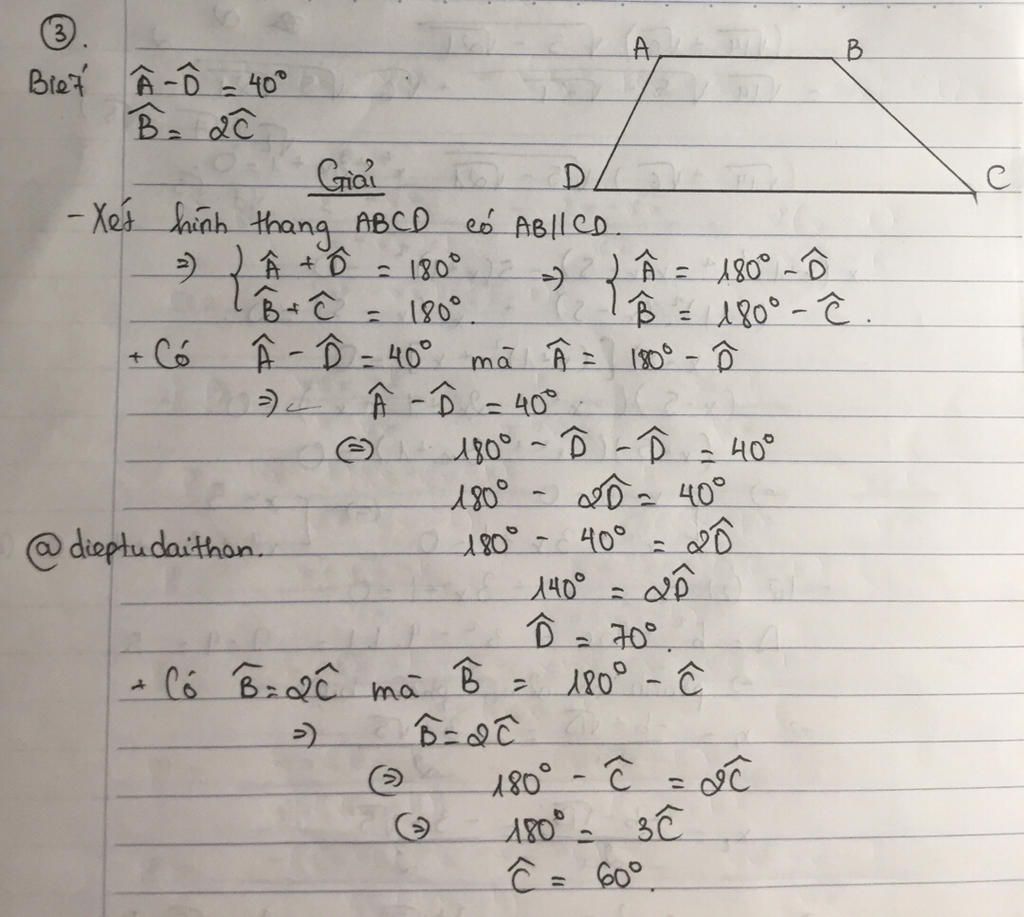 ③.
A B
Biết Â - D̂ = 40°
B̂ = 2Ĉ
Giải
D C
- Xét hình thang ABCD có AB//CD.
=> { Â + D̂ = 180° => { Â = 180° - D̂
B̂ + Ĉ = 180°. B̂ = 180° - Ĉ.
+ Có Â - D̂ = 40° mà Â = 180° - D̂
=> Â - D̂ = 40°
(=) 180° - D̂ - D̂ = 40°
180° - 2D̂ = 40°
@dieptudaithan. 180° - 40° = 2D̂
140° = 2D̂
D̂ = 70°.
+ Có B̂ = 2Ĉ mà B̂ = 180° - Ĉ
=> B̂ = 2Ĉ
(=) 180° - Ĉ = 2Ĉ
(=) 180° = 3Ĉ
Ĉ = 60°.